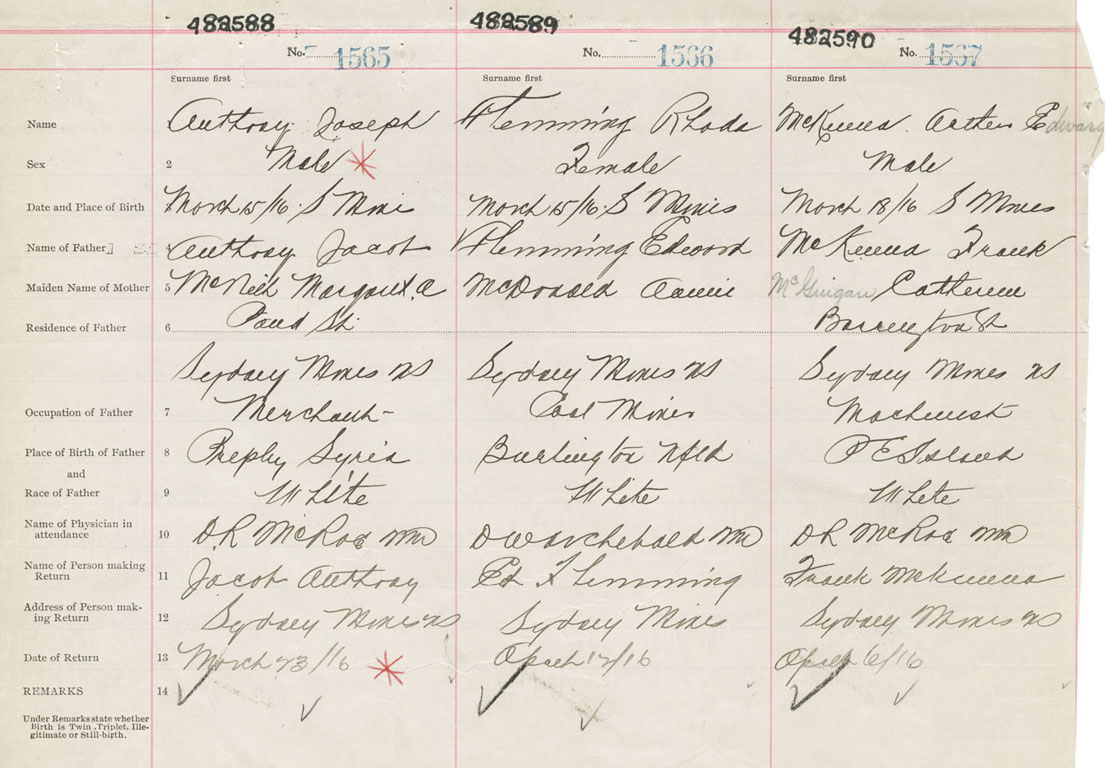 482588 482589 482590
No. 1565 No. 1566 No. 1567
Surname first Surname first Surname first
Name Anthony Joseph Flemming Rhoda McKenna Arthur Edward
Sex 2 Male Female Male
Date and Place of Birth March 15/16 S Mines March 15/16 S Mines March 18/16 S Mines
Name of Father 4 Anthony Jacob Flemming Edword McKenna Frank
Maiden Name of Mother 5 McNeil Margaret A McDonald Annie McGuigan Catherine
Residence of Father 6 Pond St. Barrington St
Sydney Mines NS Sydney Mines NS Sydney Mines NS
Occupation of Father 7 Merchant Coal Miner Machinist
Place of Birth of Father 8 Syria Burlington Nfld P E Island
and
Race of Father 9 White White White
Name of Physician in
attendance 10 D.R. McRae MD D W Archebald MD DR McRae MD
Name of Person making
Return 11 Jacob Anthony Ed Flemming Frank McKenna
Address of Person mak-
ing Return 12 Sydney Mines NS Sydney Mines Sydney Mines NS
Date of Return 13 March 23/16 April 17/16 April 6/16
REMARKS 14
Under Remarks state whether
Birth is Twin, Triplet, Ille-
gitimate or Still-birth.